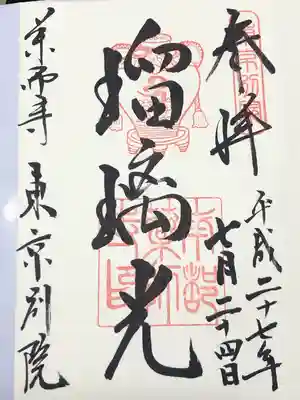 奉拝
平成二十七年
七月二十四日
瑠璃光
薬師寺東京別院